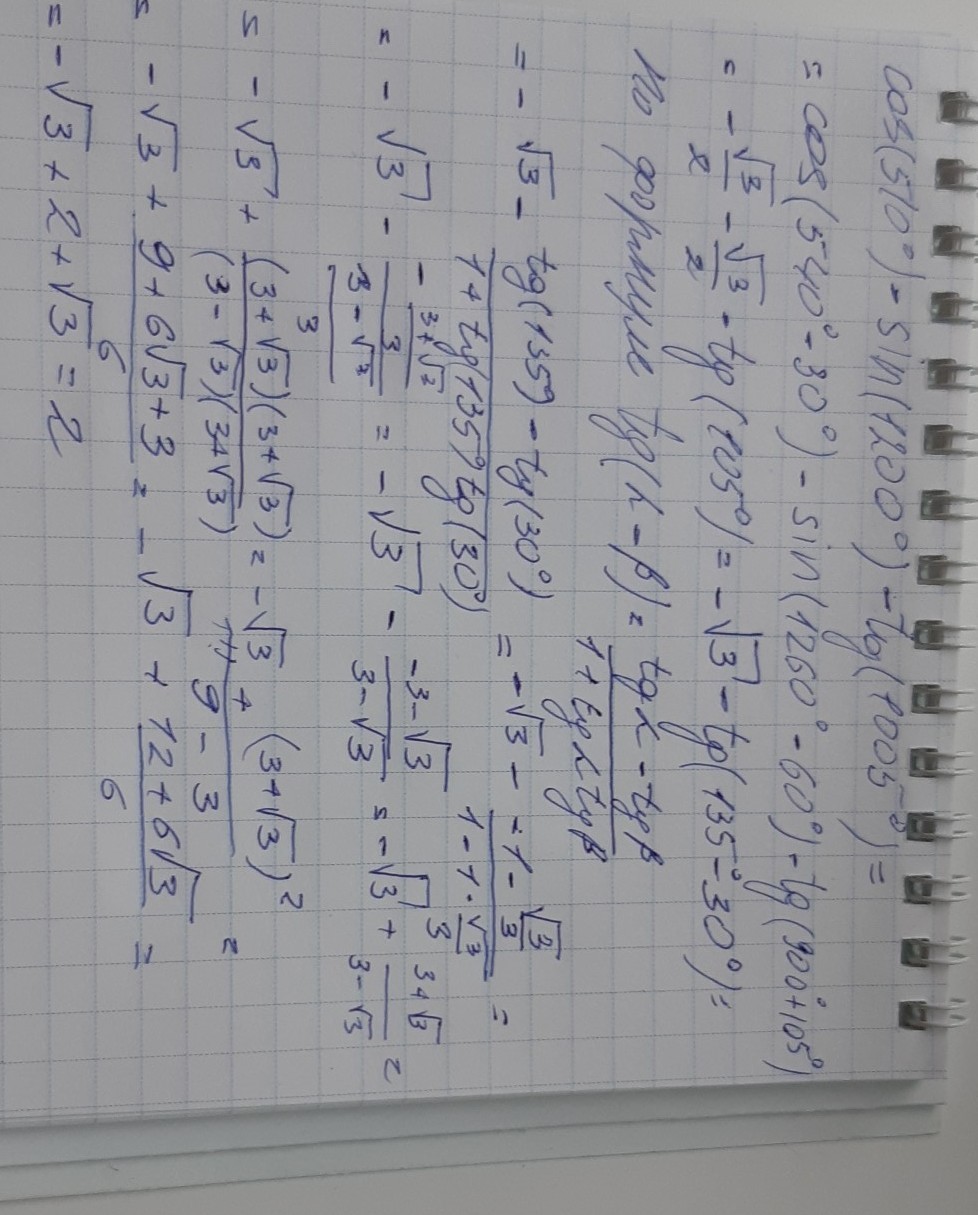 cos(510°) - sin(1200°) - tg(1005°) =
= cos(540° - 30°) - sin(1260° - 60°) - tg(900° + 105°)
= - √3/2 - √3/2 - tg(105°) = - √3 - tg(135° - 30°) =
по формуле tg(α - β) = (tgα - tgβ)/(1 + tgα tgβ)
= - √3 - (tg(135°) - tg(30°))/(1 + tg(135°) tg(30°)) = - √3 - (-1 - √3/3)/(1 - 1 · √3/3) =
= - √3 - (- (3+√3)/3)/((3 - √3)/3) = - √3 - (-3 - √3)/(3 - √3) = - √3 + (3+√3)/(3 - √3) =
= - √3 + (3+√3)(3+√3)/(3 - √3)(3+√3) = - √3 + (3+√3)²/(9 - 3) =
= - √3 + (9 + 6√3 + 3)/6 = - √3 + (12 + 6√3)/6 =
= - √3 + 2 + √3 = 2